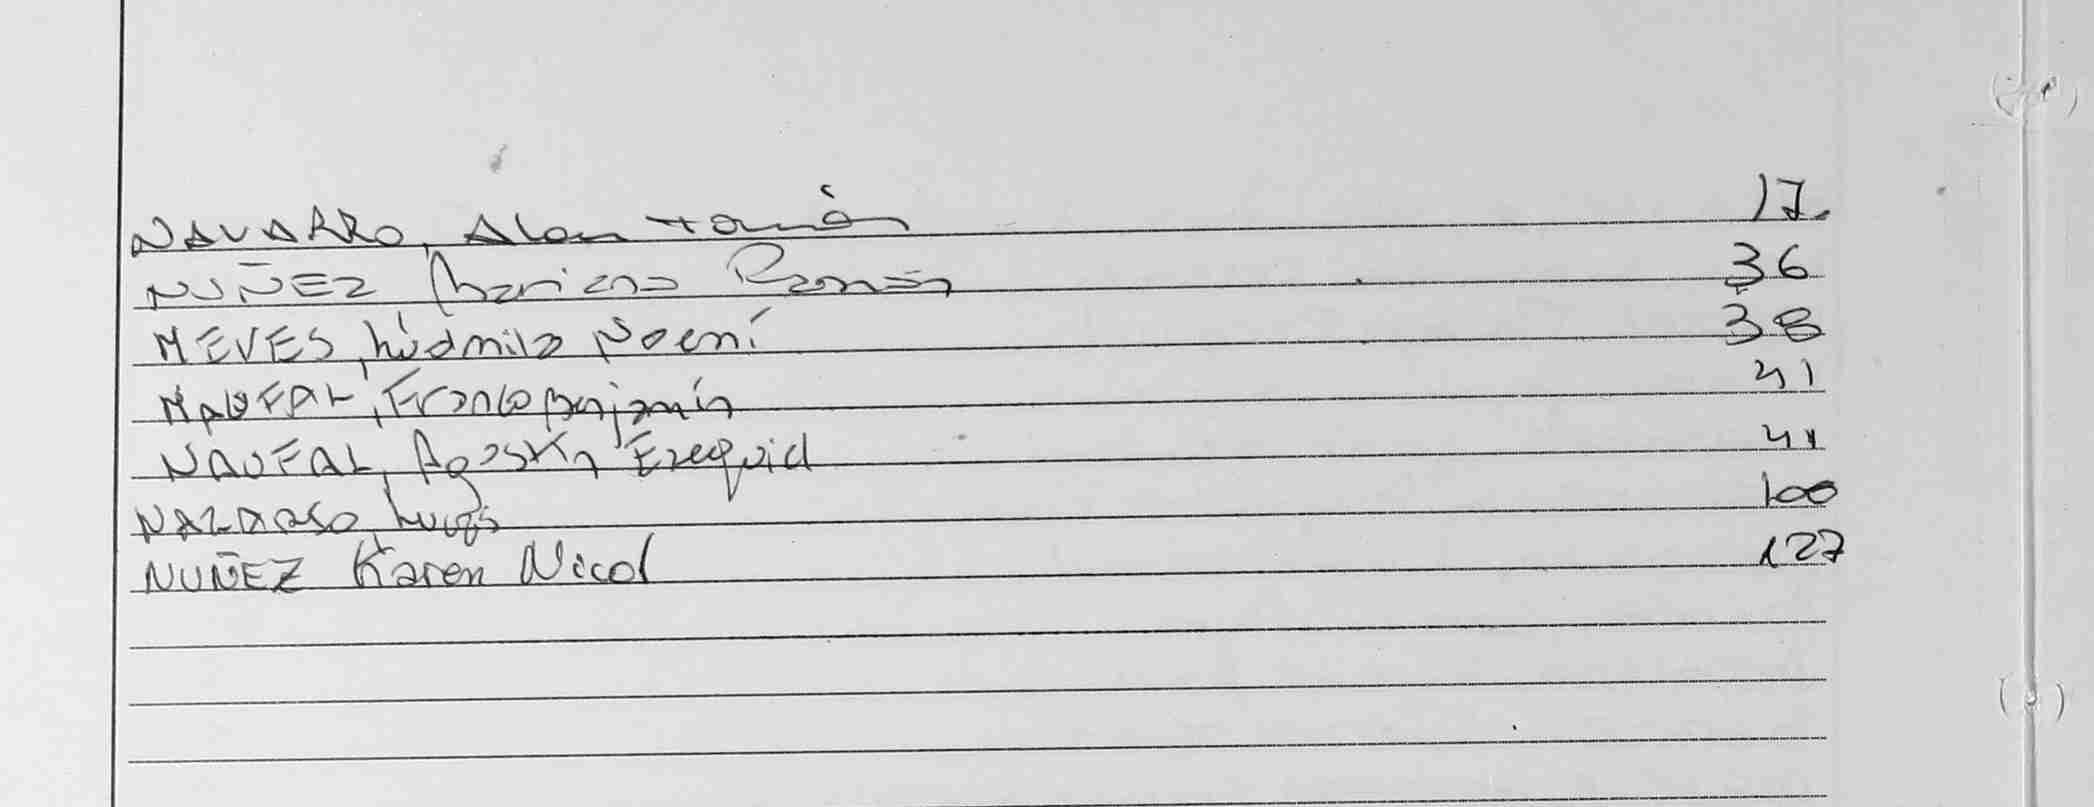 NAVARRO, Alan Tomás 17
NUÑEZ Mariano Ramón 36
NEVES, Ludmila Noemí 38
NAUFAL, Franco Benjamín 41
NAUFAL, Agostin Ezequiel 41
Lucas 100
NUÑEZ Karen Nicol 127